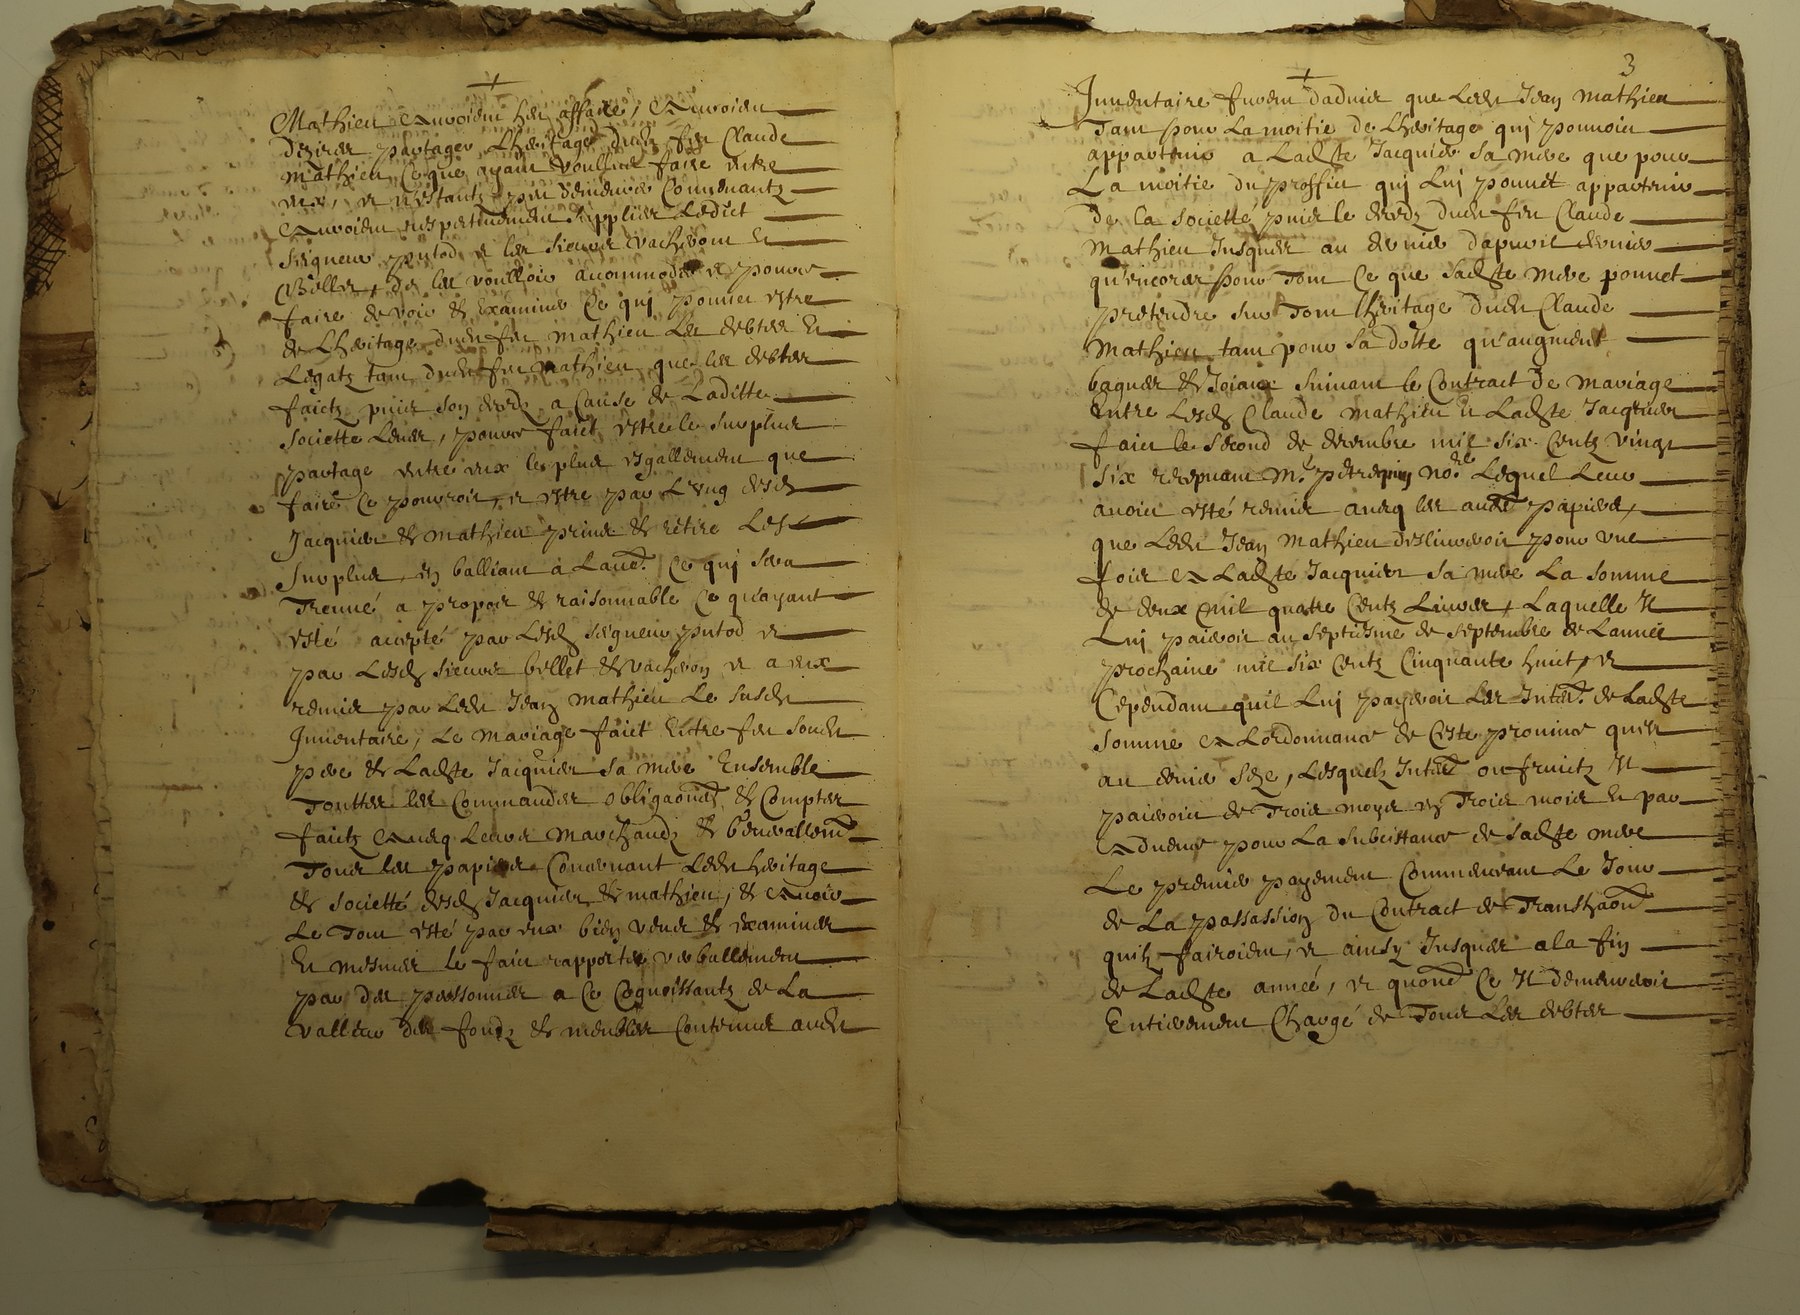 Mathieu auroient heu affaire, auroient
desirer partager Lheritage dudit feu Claude
Mathieu Ce que ayant voullus faire entre
eux, et n'estantz peu demeurer Convenantz
auroient respectivement supplier Ledict
seigneur putod et les sieurs vacheron et
Billet, de les voulloir accommoder et pour ce
faire de voir et Examiner Ce qui pouvoit estre
de Lheritage dudit feu mathieu les debtes et
Legatz tant dudit feu mathieu que les debtes
faictz puis son decedz a Cause de Laditte
Societte Leues, pour ce faict estre le surplus
partage entre eux le plus esgallement que
faire Ce pourroit, et estre par L'ung desd
Jacquier et mathieu prins et retire Led
surplus, en balliant à Laut. Ce qui sera
Treuué a propos et raisonnable Ce qu'ayant
esté accepté par Lesd seigneur putod et
par Lesd sieurs billet et vacheron et a eux
remis par Ledit Jean mathieu Le susdit
Inventaire, Le mariage faict Entre feu sondit
pere et Ladte Jacquier sa mere Ensemble
Touttes les Commandes obligaōns et Comptes
faictz avecq Leurs marchandz et g'nerallemt
Tous les papiers Concernant Ledit heritage
et societté desd Jacquier et mathieu, et avoir
Le Tout esté par eux bien veus et examines
Et mesmes le faict rapportes verballement
par des personnes a Ce Cognoissantz de La
valleur des fondz et meubles Contenus audit
3
Inventaire furent dadvis que Ledit Jean mathieu
Tant pour La moitie de Lheritage qui pouvoit
appartenir a Ladte Jacquier sa mere que pour
La moitie du proffit qui Lui pouvet appartenir
de la societté puis le decedz dudit feu Claude
Mathieu Jusques au dernier dapvril dernier
qu'encores pour Tout Ce que sadte mere pouvet
pretendre sur Tout lheritage dudit Claude
Mathieu tant pour sa dotte qu'augment
bagues et Joiaux suivant le Contract de mariage
Entre Lesd Claude mathieu et Ladte Jacquier
faict le second de decembre mil six Centz vingt
six recepvant Mr petregnin nore Lequel Leur
avoit esté remis avecq les autres papiers,
que Ledit Jean Mathieu deslivreroit pour une
fois a Ladte Jacquier sa mere La somme
de deux mil quatre Centz Livres, Laquelle Il
Lui paieroit au septiesme de septembre de Lannée
prochaine mil six Centz Cinquante huict, et
Cependant quil Lui payeroit Les Inter. de Ladte
somme a Lordonnance de Ceste province qu'est
au denier seze, Lesquelz Inter. ou fruictz Il
paieroit de Trois moys en Trois mois et par
advance pour La subcistance de sadte mere
Le premier payement Commenceant Le Jour
de La passassion du Contract de Transhaōn
quilz fairoient, et ainsy Jusques a la fin
de Ladte année, et quond Ce Il demeureroit
Entierement Chargé de Tous Les debtes